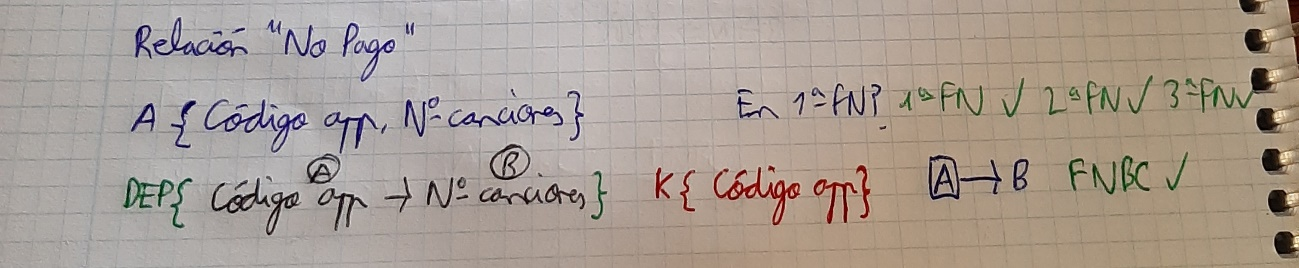 Relación "No Pago"
A { Código app, Nº canciones } En 1ª FN? 1ª FN ✓ 2ª FN ✓ 3ª FN ✓
A B
DEP{ Código app → Nº canciones } K { Código app } A → B FNBC ✓